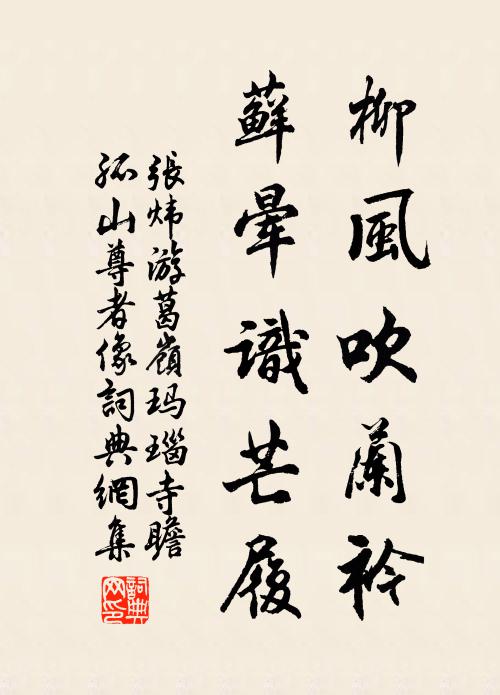 柳風吹蘭衿
蘚暈識芒履
張炜游葛嶺玛瑙寺瞻
孤山尊者像詞典網集
詞典网印